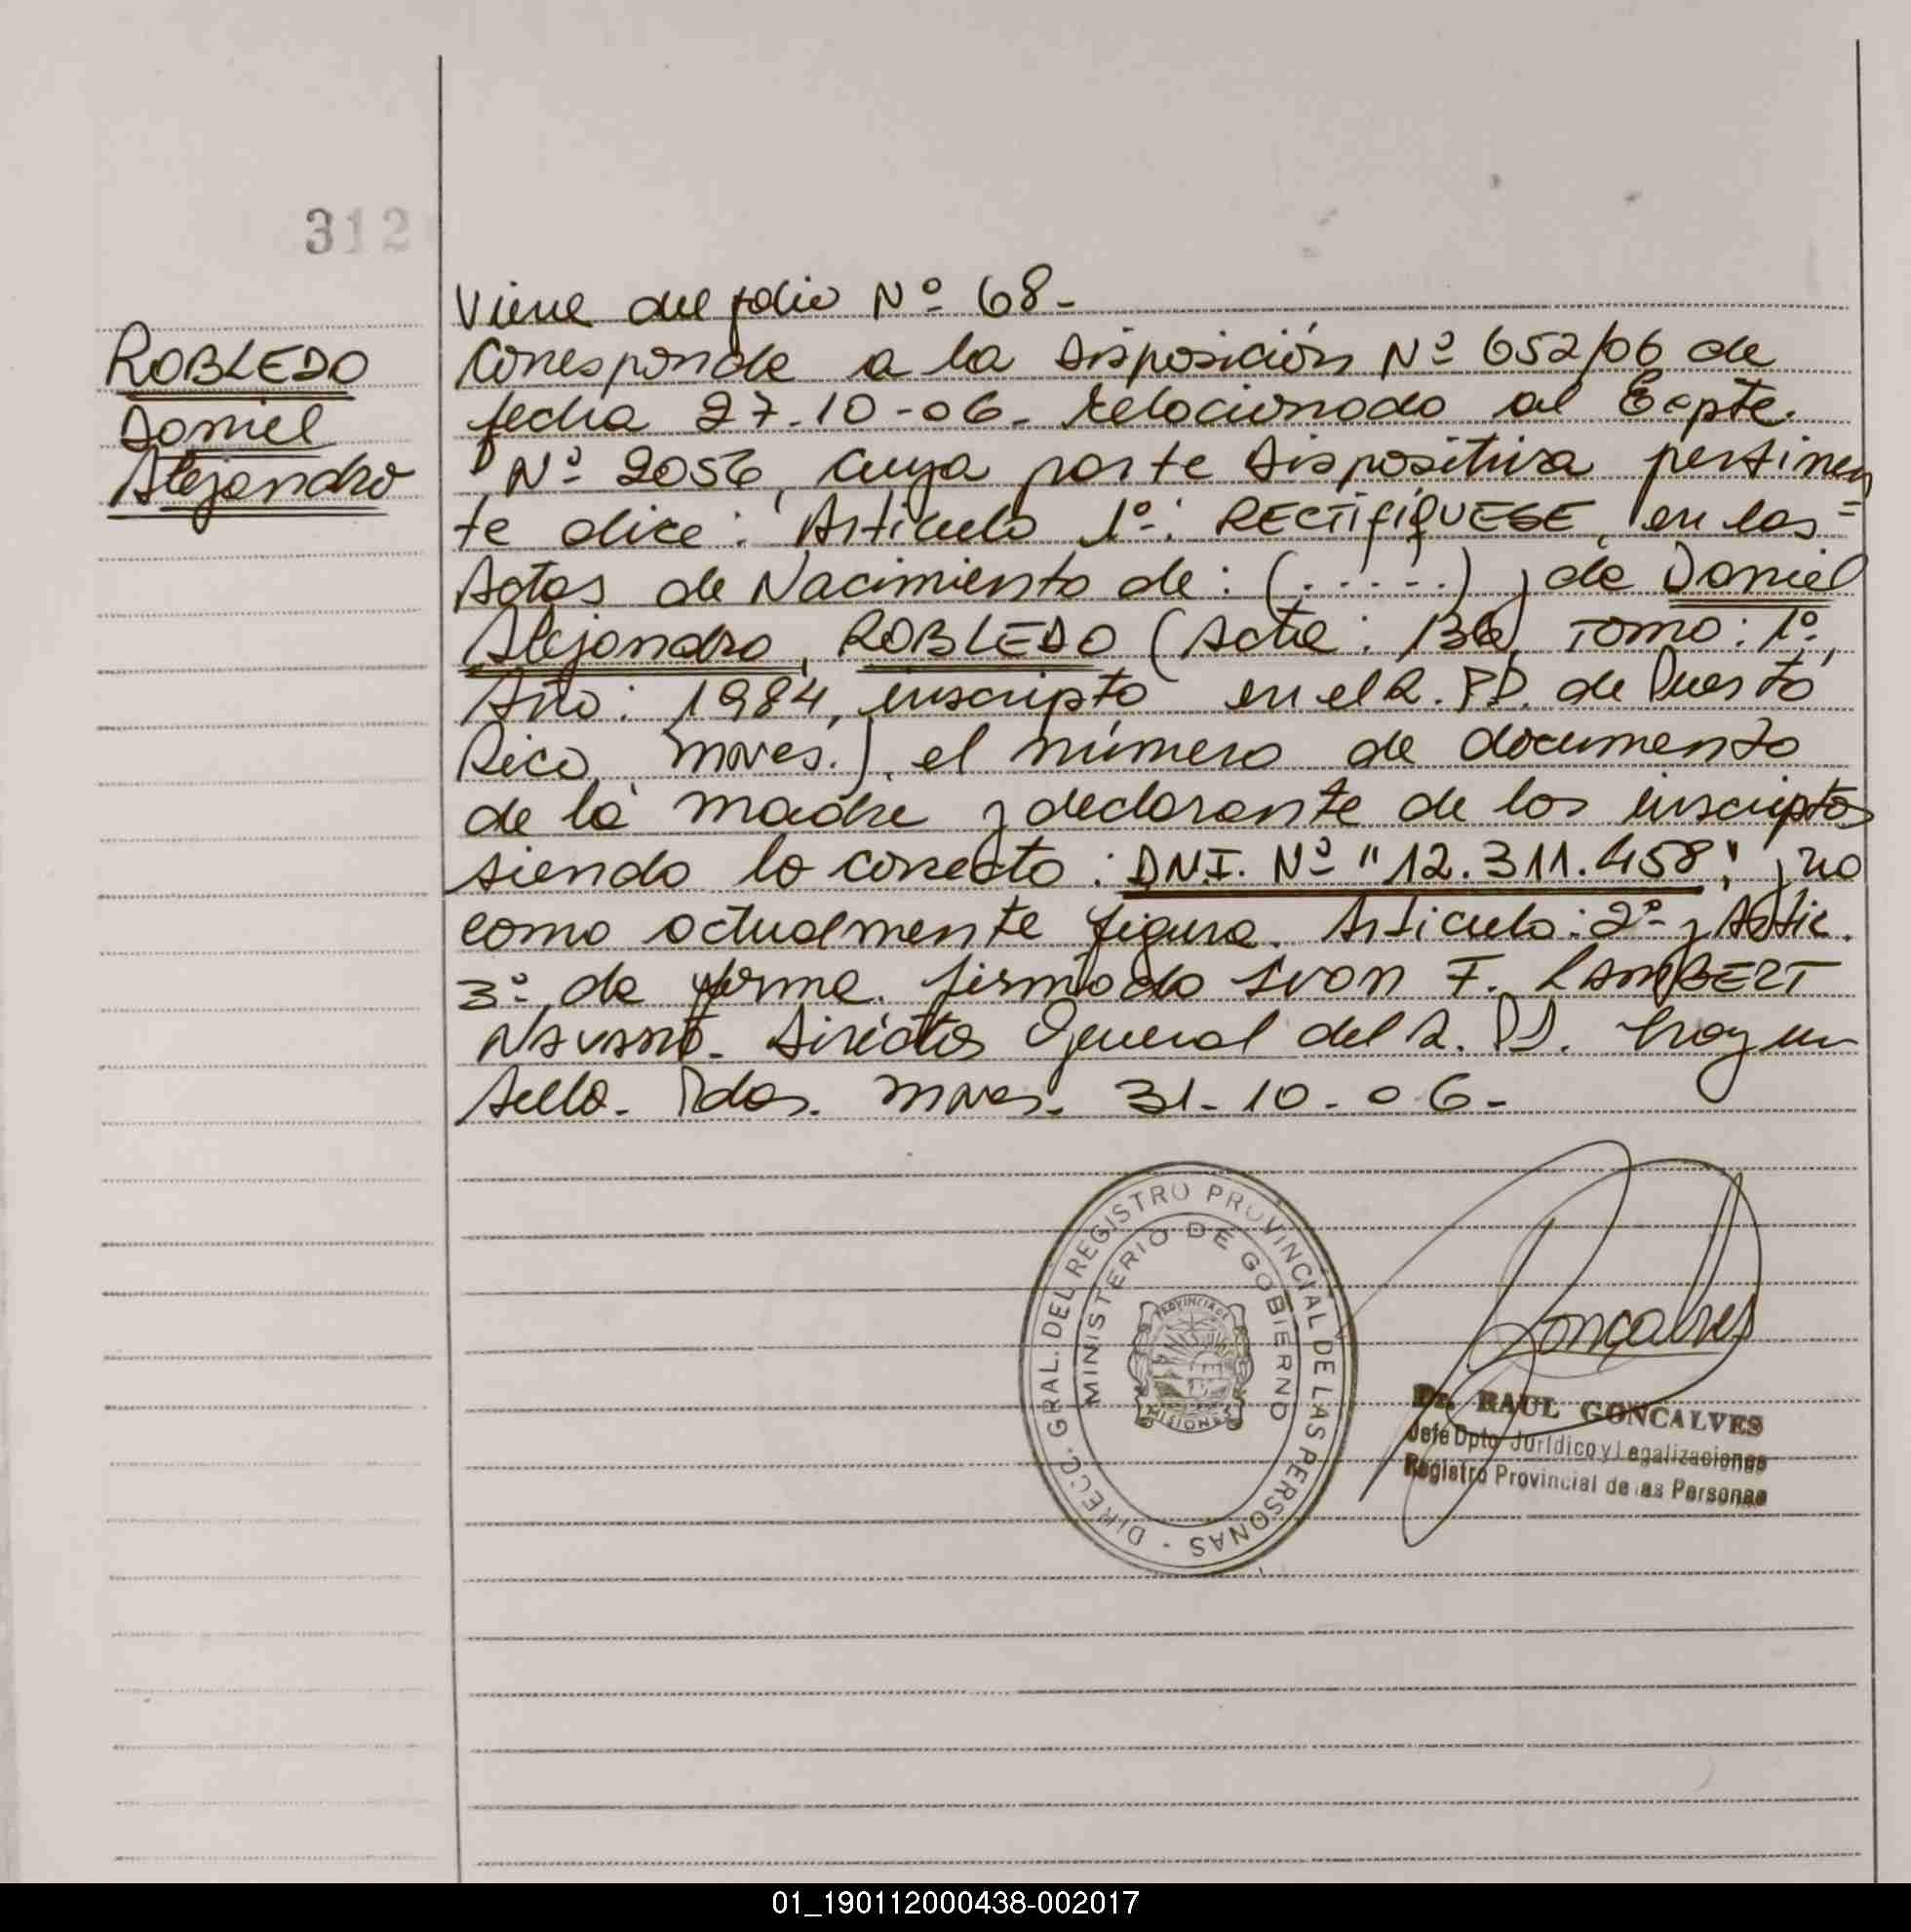 312
ROBLEDO
Daniel
Alejandro
Viene del folio Nº 68-
Corresponde a la Disposición Nº 652/06 de
fecha 27-10-06. relacionado al Expte.
Nº 2056, cuya parte dispositiva pertinen
te dice: Artículo 1º: RECTIFIQUESE, en las
Actas de Nacimiento de: (......) y de Daniel
Alejandro, ROBLEDO (Acta: 136, TOMO: 1º,
Año: 1984, inscripto en el R.P.P. de Puerto
Rico, Mnes.), el número de documento
de la madre y declarante de los inscriptos
siendo lo correcto: D.N.I. Nº "12.311.458", y no
como actualmente figura. Articulo: 2º y Artic.
3º de forma. firmado Ivon F. LAMBERT
Navarro. Director General del R.P.P. hay un
sello. Pdas. Mnes. 31-10-06-
DIRECC. GRAL. DEL REGISTRO PROVINCIAL DE LAS PERSONAS -
MINISTERIO DE GOBIERNO
PROVINCIA DE
MISIONES
Goncalves
Dr. RAUL GONCALVES
Jefe Dpto Jurídico y Legalizaciones
Registro Provincial de las Personas
01_190112000438-002017